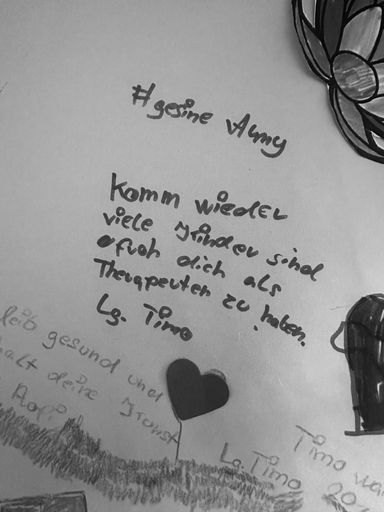 #gesine
Komm wieder
viele Kinder sind
dich als
Therapeuten zu haben.
Lg. Timo
leib gesund und
halt deine Kunst
Lg. Timo
Timo wa